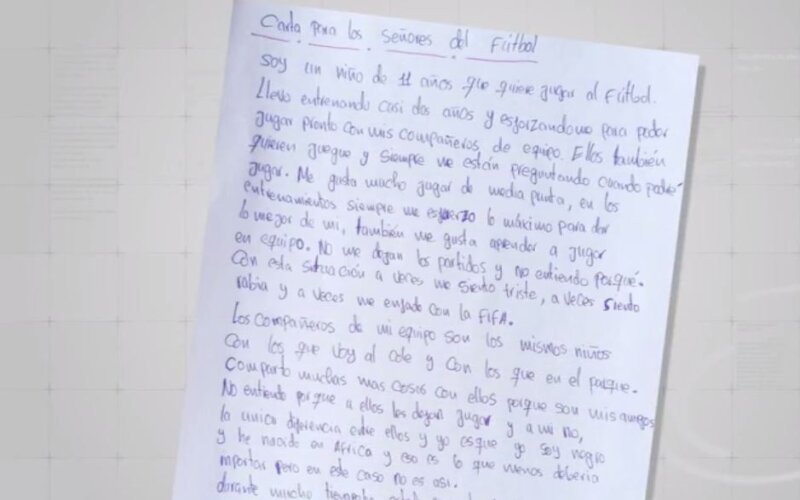 Carta para los Señores del Fútbol
Soy un niño de 11 años que quiere jugar al Fútbol.
Llevo entrenando casi dos años y esforzandome para poder
jugar pronto con mis compañeros de equipo. Ellos también
quieren juegue y siempre me están preguntando cuando podré
jugar. Me gusta mucho jugar de media punta, en los
entrenamientos siempre me esfuerzo lo máximo para dar
lo mejor de mi, también me gusta aprender a jugar
en equipo. No me dejan los partidos y no entiendo porqué.
Con esta situación a veces me siento triste, a veces siento
rabia y a veces me enfado con la FIFA.
Los compañeros de mi equipo son los mismos niños
con los que voy al cole y con los que en el parque.
Comparto muchas mas cosas con ellos porque son mis amigos
No entiendo porque a ellos les dejan jugar y a mi no,
la unica diferencia entre ellos y yo es que yo soy negro
y he nacido en Africa y eso es lo que menos deberia
importar pero en este caso no es asi.
durante mucho tiempo